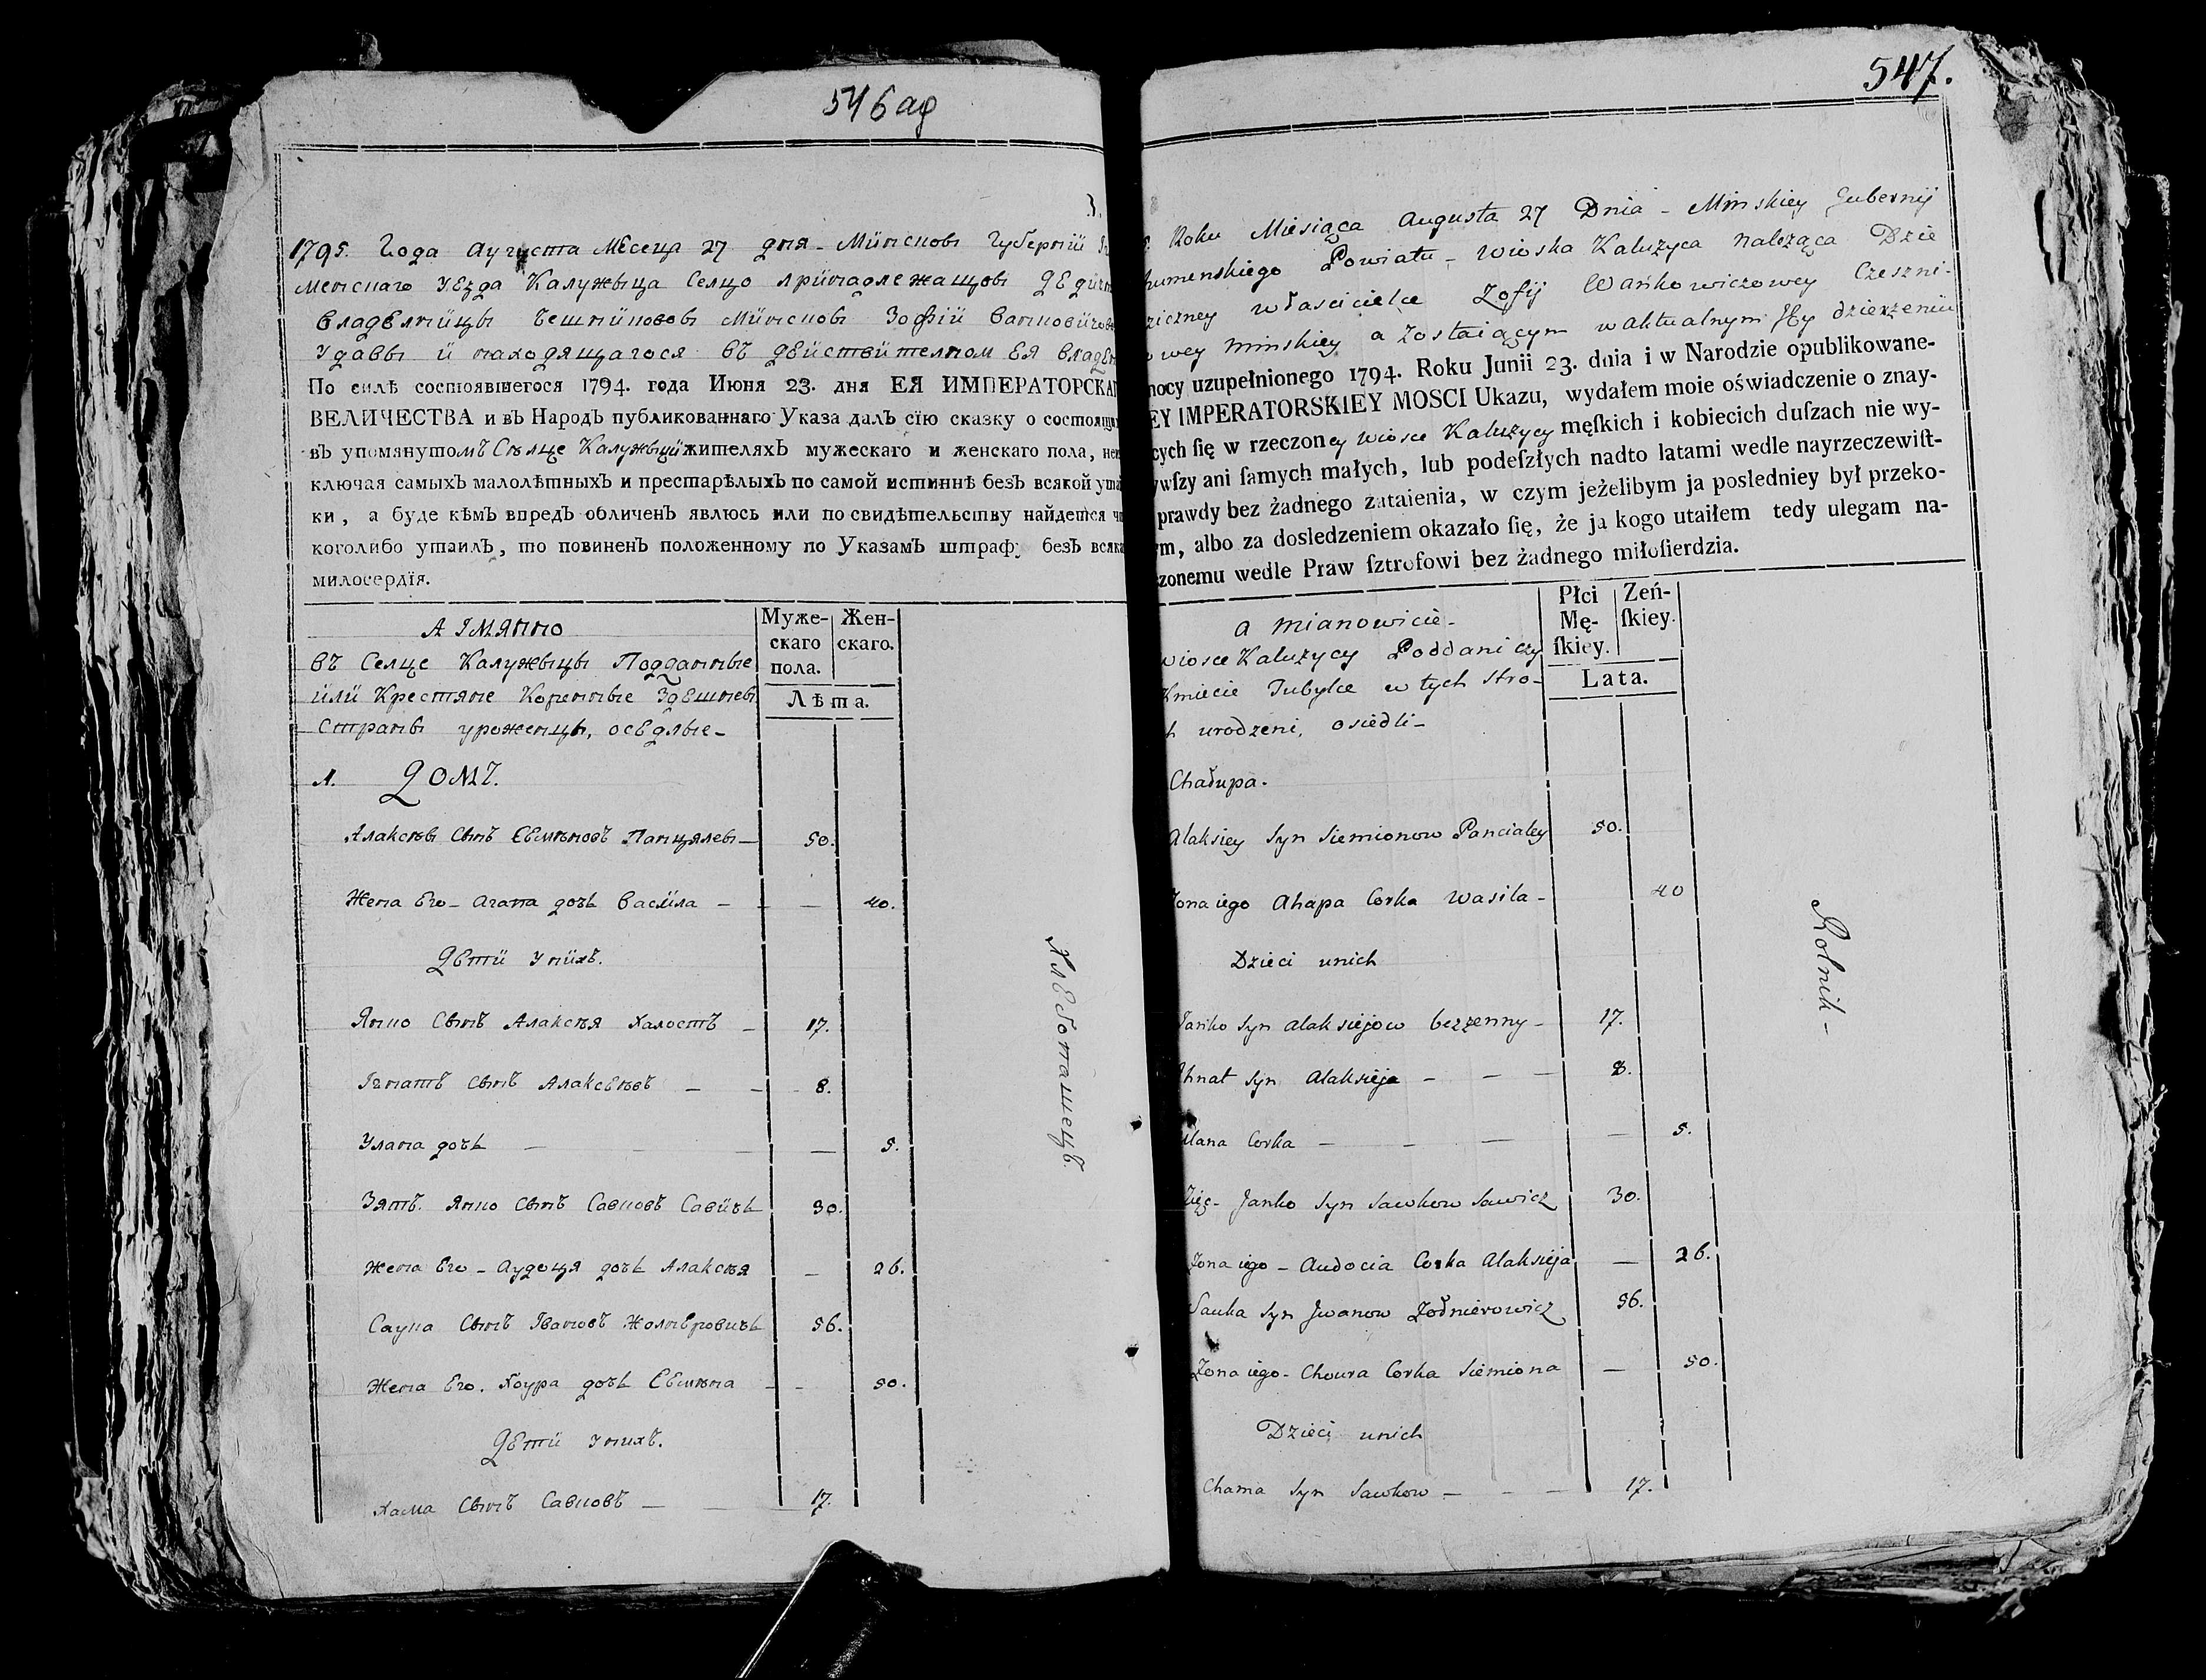 546 ад
1795. Года Августа Месеца 27 дня - Минской Губернии
менскаго Уезда Калужыца Селцо принадлежащой Дедичн
владелницы Чешниковой Минской Зофии Ванковичово
Удавы и находящагося въ действителном Ея владен
По силѣ состоявшегося 1794. года Июня 23. дня ЕЯ ИМПЕРАТОРСКА
ВЕЛИЧЕСТВА и въ Народъ публикованнаго Указа далъ сїю сказку о состоящи
въ упомянутомъ Сѣлце Калужыци жителяхъ мужескаго и женскаго пола, не
ключая самыхъ малолѣтныхъ и престарѣлыхъ по самой истиннѣ безъ всякой ута
ки, а буде кѣмъ впредъ обличенъ явлюсь или по свидѣтельству найдется ч
коголибо утаилъ, то повиненъ положенному по Указамъ штрафу безъ всяка
милосердїя.
А Імянно
въ Селце Калужыцы Подданные
или Крестяне Коренные здешней
Страны уроженцы, оседлые -
Муже-
скаго
пола.
Жен-
скаго.
Лѣта.
1. Домъ.
Алаксѣй Сынъ Семѣновъ Панцялей - 50.
Жена Его - Агапа дочь Васила - - - 40.
Дети у нихъ.
Янко Сынъ Алаксѣя Халостъ - 17.
Ігнатъ Сынъ Алаксеѣвъ - - 8.
Улана дочь - - - 5.
Зять. Янко Сынъ Савковъ Савичь 30.
Жена Его - Аудоця дочь Алаксѣя - 26.
Саука Сынъ Івановъ Жолнеровичь 56.
Жена Его. Хоура дочь Семѣна - - 50.
Дети у нихъ.
Хама Сынъ Савковъ - - 17.
Хлебопашецъ.
547.
Roku Miesiąca Augusta 27 Dnia - Minskiey Gubernij
humenskiego Powiatu - wioska Kalużyca należąca Dzie
ziczney właścicielce Zofij Wańkowiczowey Czeszni-
owey Minskiey a zostaiącym w aktualnym Jey dzierżeniu
mocy uzupełnionego 1794. Roku Junii 23. dnia i w Narodzie opublikowane-
EY IMPERATORSKIEY MOSCI Ukazu, wydałem moie oświadczenie o znay-
cych ſię w rzeczoney wiosce Kalużycy męſkich i kobiecich duſzach nie wy-
wſzy ani ſamych małych, lub podeſzłych nadto latami wedle nayrzeczewiſt-
prawdy bez żadnego zataienia, w czym jeżelibym ja posledniey był przeko-
ym, albo za dosledzeniem okazało ſię, że ja kogo utaiłem tedy ulegam na-
czonemu wedle Praw ſztrofowi bez żadnego miłoſierdzia.
a mianowicie -
wiosce Kalużycy Poddani czy
Kmiecie Tubylce w tych stro-
h urodzeni, osiedli -
Płci
Mę-
ſkiey.
Zeń-
ſkiey.
Lata.
Chałupa.
Alaksiey Syn Siemionow Pancialey 50.
Żona iego Ahapa Corka Wasila - 40
Dzieci unich
Jańko Syn Alaksiejow bezżenny - 17.
Ihnat Syn Alaksieja - - - 8.
Ulana Corka - - - - 5.
Zięć - Janko Syn Sawkow Sawicz 30.
Żona iego - Audocia Corka Alaksieja - 26.
Sauka Syn Jwanow Żołnierowicz 56.
Żona iego - Choura Corka Siemiona - 50.
Dzieci unich
Chama Syn Sawkow - - - 17.
Rolnik -